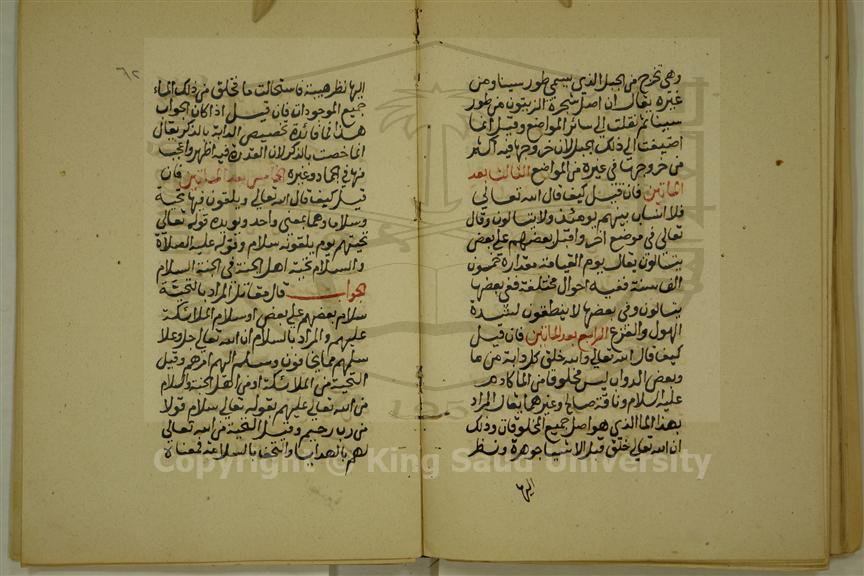 وهى تخرج من الجبل الذى يسمى طور سينا ومن
غيره يقال ان اصل شجرة الزيتون من طور
سينا ثم نقلت الى سائر المواضع وقيل انما
اضيفت الى ذلك الجبل لان خروجها فيه اكثر
من خروجها فى غيره من المواضع الثالث بعد
المايتين فان قيل كيف قال الله تعالى
فلا انساب بينهم يومئذ ولا يتسالون وقال
تعالى فى موضع اخر واقبل بعضهم على بعض
يتسالون يقال يوم القيامة مقداره خمسون
الف سنة ففيه احوال مختلفة ففى بعضها
يتسالون وفى بعضها لا ينطقون لشدة
الهول والفزع الرابع بعد المايتين فان قيل
كيف قال الله تعالى والله خلق كل دابة من ما
وبعض الدواب ليس مخلوقا من الما كادم
عليه السلام وناقة صالح وغيرهما يقال المراد
بهذا الما الذى هو اصل جميع المخلوقات وذلك
ان الله تعالى خلق قبل الاشيا جوهرة ونظر
اليها
٦٢
اليها نظر هيبة فاستحالت ما فخلق من ذلك الماء
جميع الموجودات فان قيل اذا كان الجواب
هذا فما فائدة تخصيص الدابة بالذكر يقال
انما خصت بالذكر لان القدرة فيه اظهر واعجب
منها فى الجماد وغيره الخامس بعد المايتين فان
قيل كيف قال الله تعالى ويلقون فيها تحية
وسلاما وهما بمعنى واحد ويويده قوله تعالى
تحيتهم يوم يلقونه سلام وقوله عليه الصلاة
والسلام تحية اهل الجنة فى الجنة السلام
الجواب قال مقاتل المراد بالتحية
سلام بعضهم على بعض او سلام الملائكة
عليهم والمراد بالسلام ان الله تعالى جل وعلا
سلمهم مما يخافون وسلم اليهم امرهم وقيل
التحية من الملائكة او من اهل الجنة والسلام
من الله تعالى عليهم بقوله تعالى سلام قولا
من رب رحيم وقيل التحية من الله تعالى
لهم بالهدايا والتحف بالسلام
Copyright © King Saud University